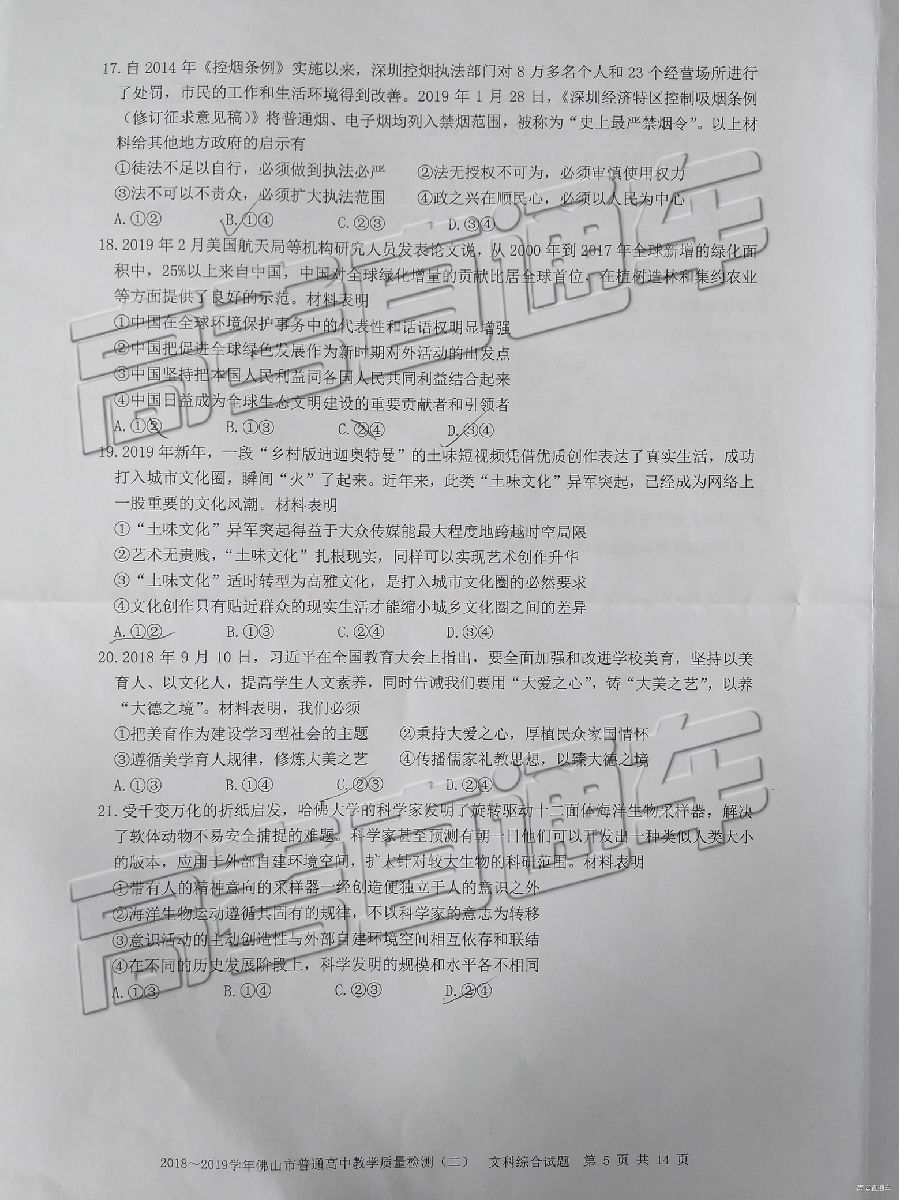 17. 自 2014 年《控烟条例》实施以来，深圳控烟执法部门对 8 万多名个人和 23 个经营场所进行
了处罚，市民的工作和生活环境得到改善。2019 年 1 月 28 日，《深圳经济特区控制吸烟条例
（修订征求意见稿）》将普通烟、电子烟均列入禁烟范围，被称为“史上最严禁烟令”。以上材
料给其他地方政府的启示有
①徒法不足以自行，必须做到执法必严 ②法无授权不可为，必须审慎使用权力
③法不可以不责众，必须扩大执法范围 ④政之兴在顺民心，必须以人民为中心
A.①② B.①④ C.②③ D.③④
18. 2019 年 2 月美国航天局等机构研究人员发表论文说，从 2000 年到 2017 年全球新增的绿化面
积中，25%以上来自中国，中国对全球绿化增量的贡献比居全球首位，在植树造林和集约农业
等方面提供了良好的示范。材料表明
①中国在全球环境保护事务中的代表性和话语权明显增强
②中国把促进全球绿色发展作为新时期对外活动的出发点
③中国坚持把本国人民利益同各国人民共同利益结合起来
④中国日益成为全球生态文明建设的重要贡献者和引领者
A.①② B.①③ C.②④ D.③④
19. 2019 年新年，一段“乡村版迪迦奥特曼”的土味短视频凭借优质创作表达了真实生活，成功
打入城市文化圈，瞬间“火”了起来。近年来，此类“土味文化”异军突起，已经成为网络上
一股重要的文化风潮。材料表明
①“土味文化”异军突起得益于大众传媒能最大程度地跨越时空局限
②艺术无贵贱，“土味文化”扎根现实，同样可以实现艺术创作升华
③“土味文化”适时转型为高雅文化，是打入城市文化圈的必然要求
④文化创作只有贴近群众的现实生活才能缩小城乡文化圈之间的差异
A.①② B.①③ C.②④ D.③④
20. 2018 年 9 月 10 日，习近平在全国教育大会上指出，要全面加强和改进学校美育，坚持以美
育人、以文化人，提高学生人文素养，同时告诫我们要用“大爱之心”，铸“大美之艺”，以养
“大德之境”。材料表明，我们必须
①把美育作为建设学习型社会的主题 ②秉持大爱之心，厚植民众家国情怀
③遵循美学育人规律，修炼大美之艺 ④传播儒家礼教思想，以臻大德之境
A.①③ B.①④ C.②③ D.②④
21. 受千变万化的折纸启发，哈佛大学的科学家发明了旋转驱动十二面体海洋生物采样器，解决
了软体动物不易安全捕捉的难题。科学家甚至预测有朝一日他们可以开发出一种类似人类大小
的版本，应用于外部自建环境空间，扩大针对较大生物的科研范围。材料表明
①带有人的精神意向的采样器一经创造便独立于人的意识之外
②海洋生物运动遵循其固有的规律，不以科学家的意志为转移
③意识活动的主动创造性与外部自建环境空间相互依存和联结
④在不同的历史发展阶段上，科学发明的规模和水平各不相同
A.①③ B.①④ C.②③ D.②④
高考直通车
高考直通车
2018～2019学年佛山市普通高中教学质量检测（二） 文科综合试题 第 5 页 共 14 页
高考直通车